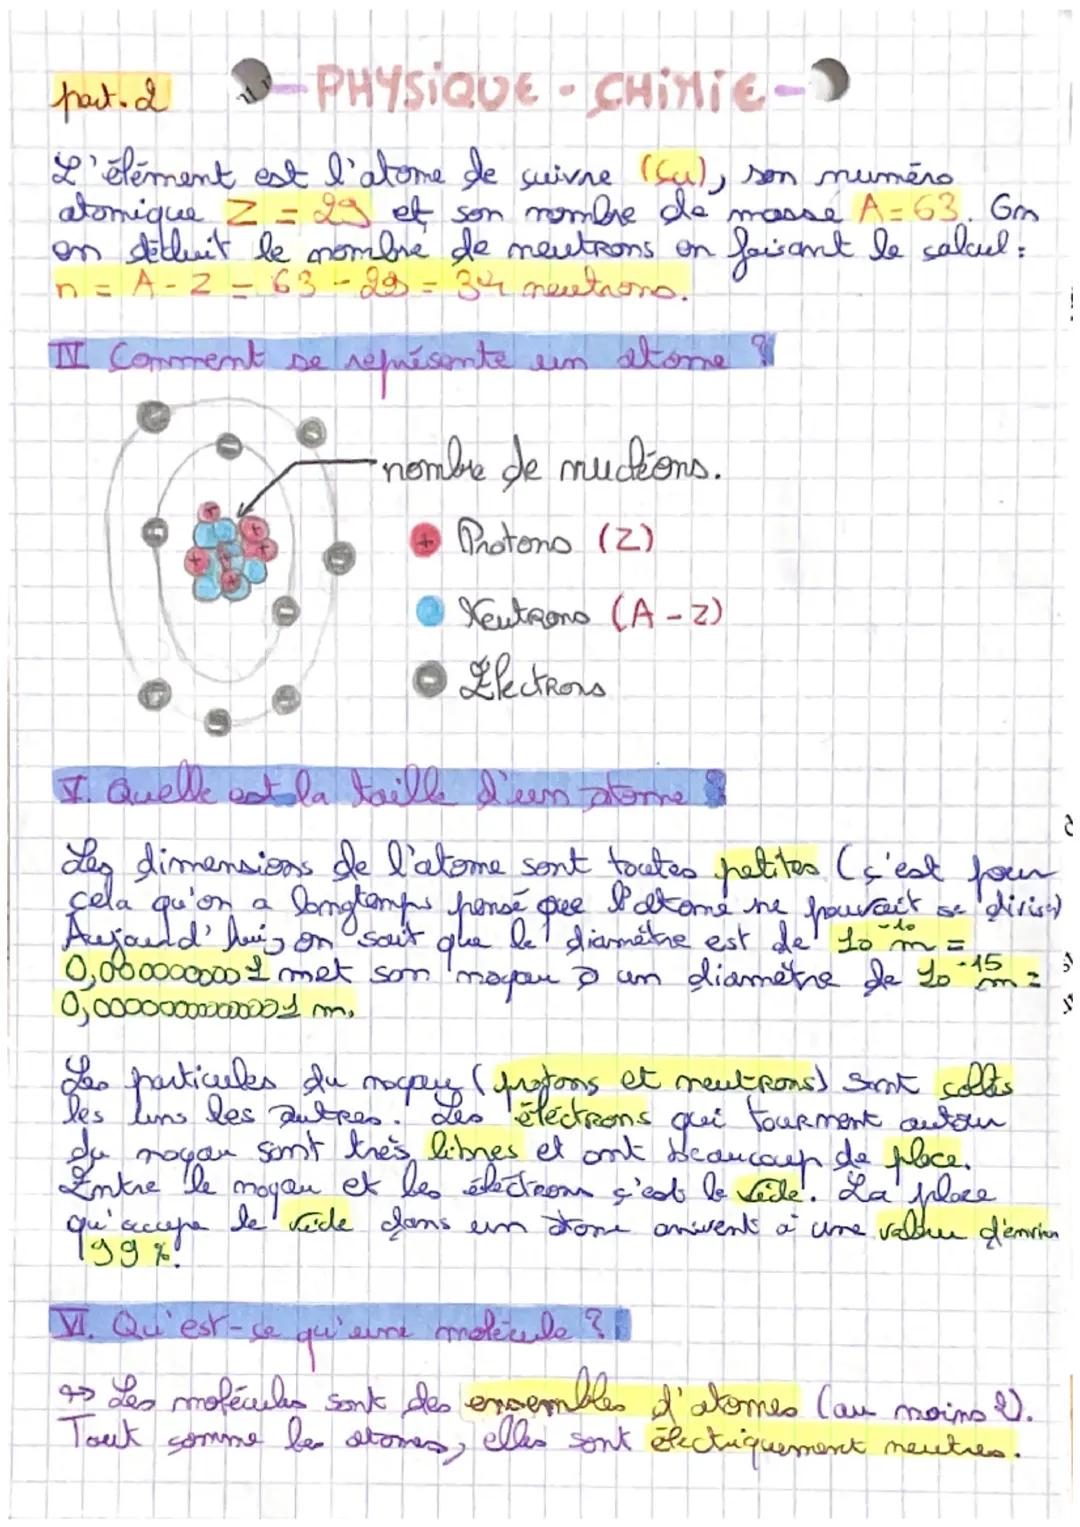 part. 2
- PHYSiQUE - CHiMiE -
L'élément est l'atome de cuivre (Cu), son numéro
atomique Z = 29 et son nombre de masse A = 63. On
en déduit le nombre de neutrons en faisant le calcul :
n = A - Z = 63 - 29 = 34 neutrons.
IV Comment se représente un atome ?
nombre de nucléons.
+ Protons (Z)
Neutrons (A - Z)
- Électrons
V. Quelle est la taille d'un atome ?
Les dimensions de l'atome sont toutes petites (c'est pour
cela qu'on a longtemps pensé que l'atome ne pouvait se diviser)
Aujourd'hui, on sait que le diamètre est de 10⁻¹⁰ m =
0,0000000001 m et son noyau a un diamètre de 10⁻¹⁵ m =
m.
Les particules du noyau (protons et neutrons) sont collés
les uns les autres. Les électrons qui tournent autour
du noyau sont très libres et ont beaucoup de place.
Entre le noyau et les électrons c'est le vide. La place
qu'occupe le vide dans un atome arrivent à une valeur d'environ
99 %.
VI. Qu'est-ce qu'une molécule ?
↪ Les molécules sont des ensembles d'atomes (au moins 2).
Tout comme les atomes, elles sont électriquement neutres.